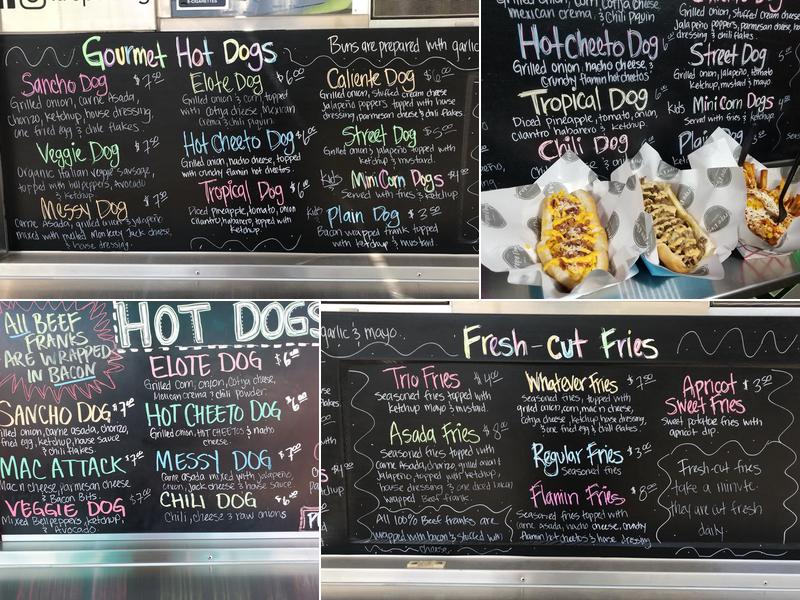 Gourmet Hot Dogs
Buns are prepared with garlic
Sancho Dog $7.50
Grilled onion, carne Asada,
chorizo, ketchup, house dressing,
one fried egg & chile flakes.
Veggie Dog $7.00
Organic Italian veggie sausage,
topped with bellpeppers, avocado
& ketchup.
Messy Dog $7.50
carne Asada, grilled onion & jalapeño
mixed with melted Monterey Jack cheese,
& house dressing.
Elote Dog $6.00
Grilled onion & corn, topped
with cotija cheese, Mexican
crema & chili
Hot Cheeto Dog $6.00
Grilled onion, nacho cheese, topped
with crunchy flamin hot cheetos.
Tropical Dog $6
Diced Pineapple, tomato, onion
cilantro, habanero, topped with
ketchup.
Caliente Dog $6.00
Grilled onion, stuffed cream cheese
jalapeño poppers topped with house
dressing, parmesan cheese & chili flakes.
Street Dog $5.00
Grilled onion & jalapeño topped with
ketchup & mustard.
Kids Mini Corn Dogs $4
Served with fries & ketchup
Kids Plain Dog $3.50
Bacon wrapped frank topped
with ketchup & mustard.
Grilled onion, corn Cotija cheese,
mexican crema & chili piquin
Hot Cheeto Dog 6
Grilled onion, nacho cheese, &
crunchy flamin hot cheetos
Tropical Dog 6
Diced pineapple, tomato, onion,
cilantro habanero & ketchup.
Chili Dog
Grilled onion, stuffed cream cheese
Jalapeño poppers, parmesan cheese, house
dressing & chili flakes.
Street Dog
Grilled onion, jalapeño, tomato
ketchup, mustard & mayo
Kids Mini Corn Dogs
Served with fries & ketchup
Kids Plain
All BEEF
FRANKS
ARE WRAPPED
IN BACON
HOT DOGS
SANCHO DOG $7.00
Grilled onion, carne asada, chorizo,
fried egg, ketchup, house sauce
& chili flakes.
MAC ATTACK $7.00
Mac n cheese, parmesan cheese
& Bacon Bits.
VEGGIE DOG $7.00
Mixed Bellpeppers, ketchup,
& Avocado.
ELOTE DOG $6.00
Grilled corn, onion, Cotija cheese,
Mexican crema & chili powder.
HOT CHEETO DOG $6.00
Grilled onion, HOT CHEETOS & nacho
cheese.
MESSY DOG $7.00
Carne asada mixed with jalapeño,
onion, Jack cheese & house sauce
CHILI DOG $6.00
Chili, cheese & raw onions
garlic & mayo.
Fresh-cut Fries
Trio Fries $4.00
Seasoned fries topped with
ketchup mayo & mustard.
Asada Fries $8.00
Seasoned fries topped with
Carne Asada, chorizo, grilled onion &
Jalapeño, topped with ketchup,
house dressing & one diced bacon
wrapped Beef frank.
All 100% Beef franks are
wrapped with bacon & stuffed with
cheese.
Whatever Fries $7.50
Seasoned fries, topped with
grilled onion, corn, mac n cheese,
cotija cheese, ketchup, house dressing,
& one fried egg & chili flakes.
Regular Fries $3.00
Seasoned fries
Flamin Fries $6.00
Seasoned fries topped with
carne Asada, nacho cheese, crunchy
flamin hot cheetos & house dressing
Apricot $3.50
Sweet Fries
Sweet potatoe fries with
apricot dip.
Fresh-cut fries
take a minute.
They are cut fresh
daily.